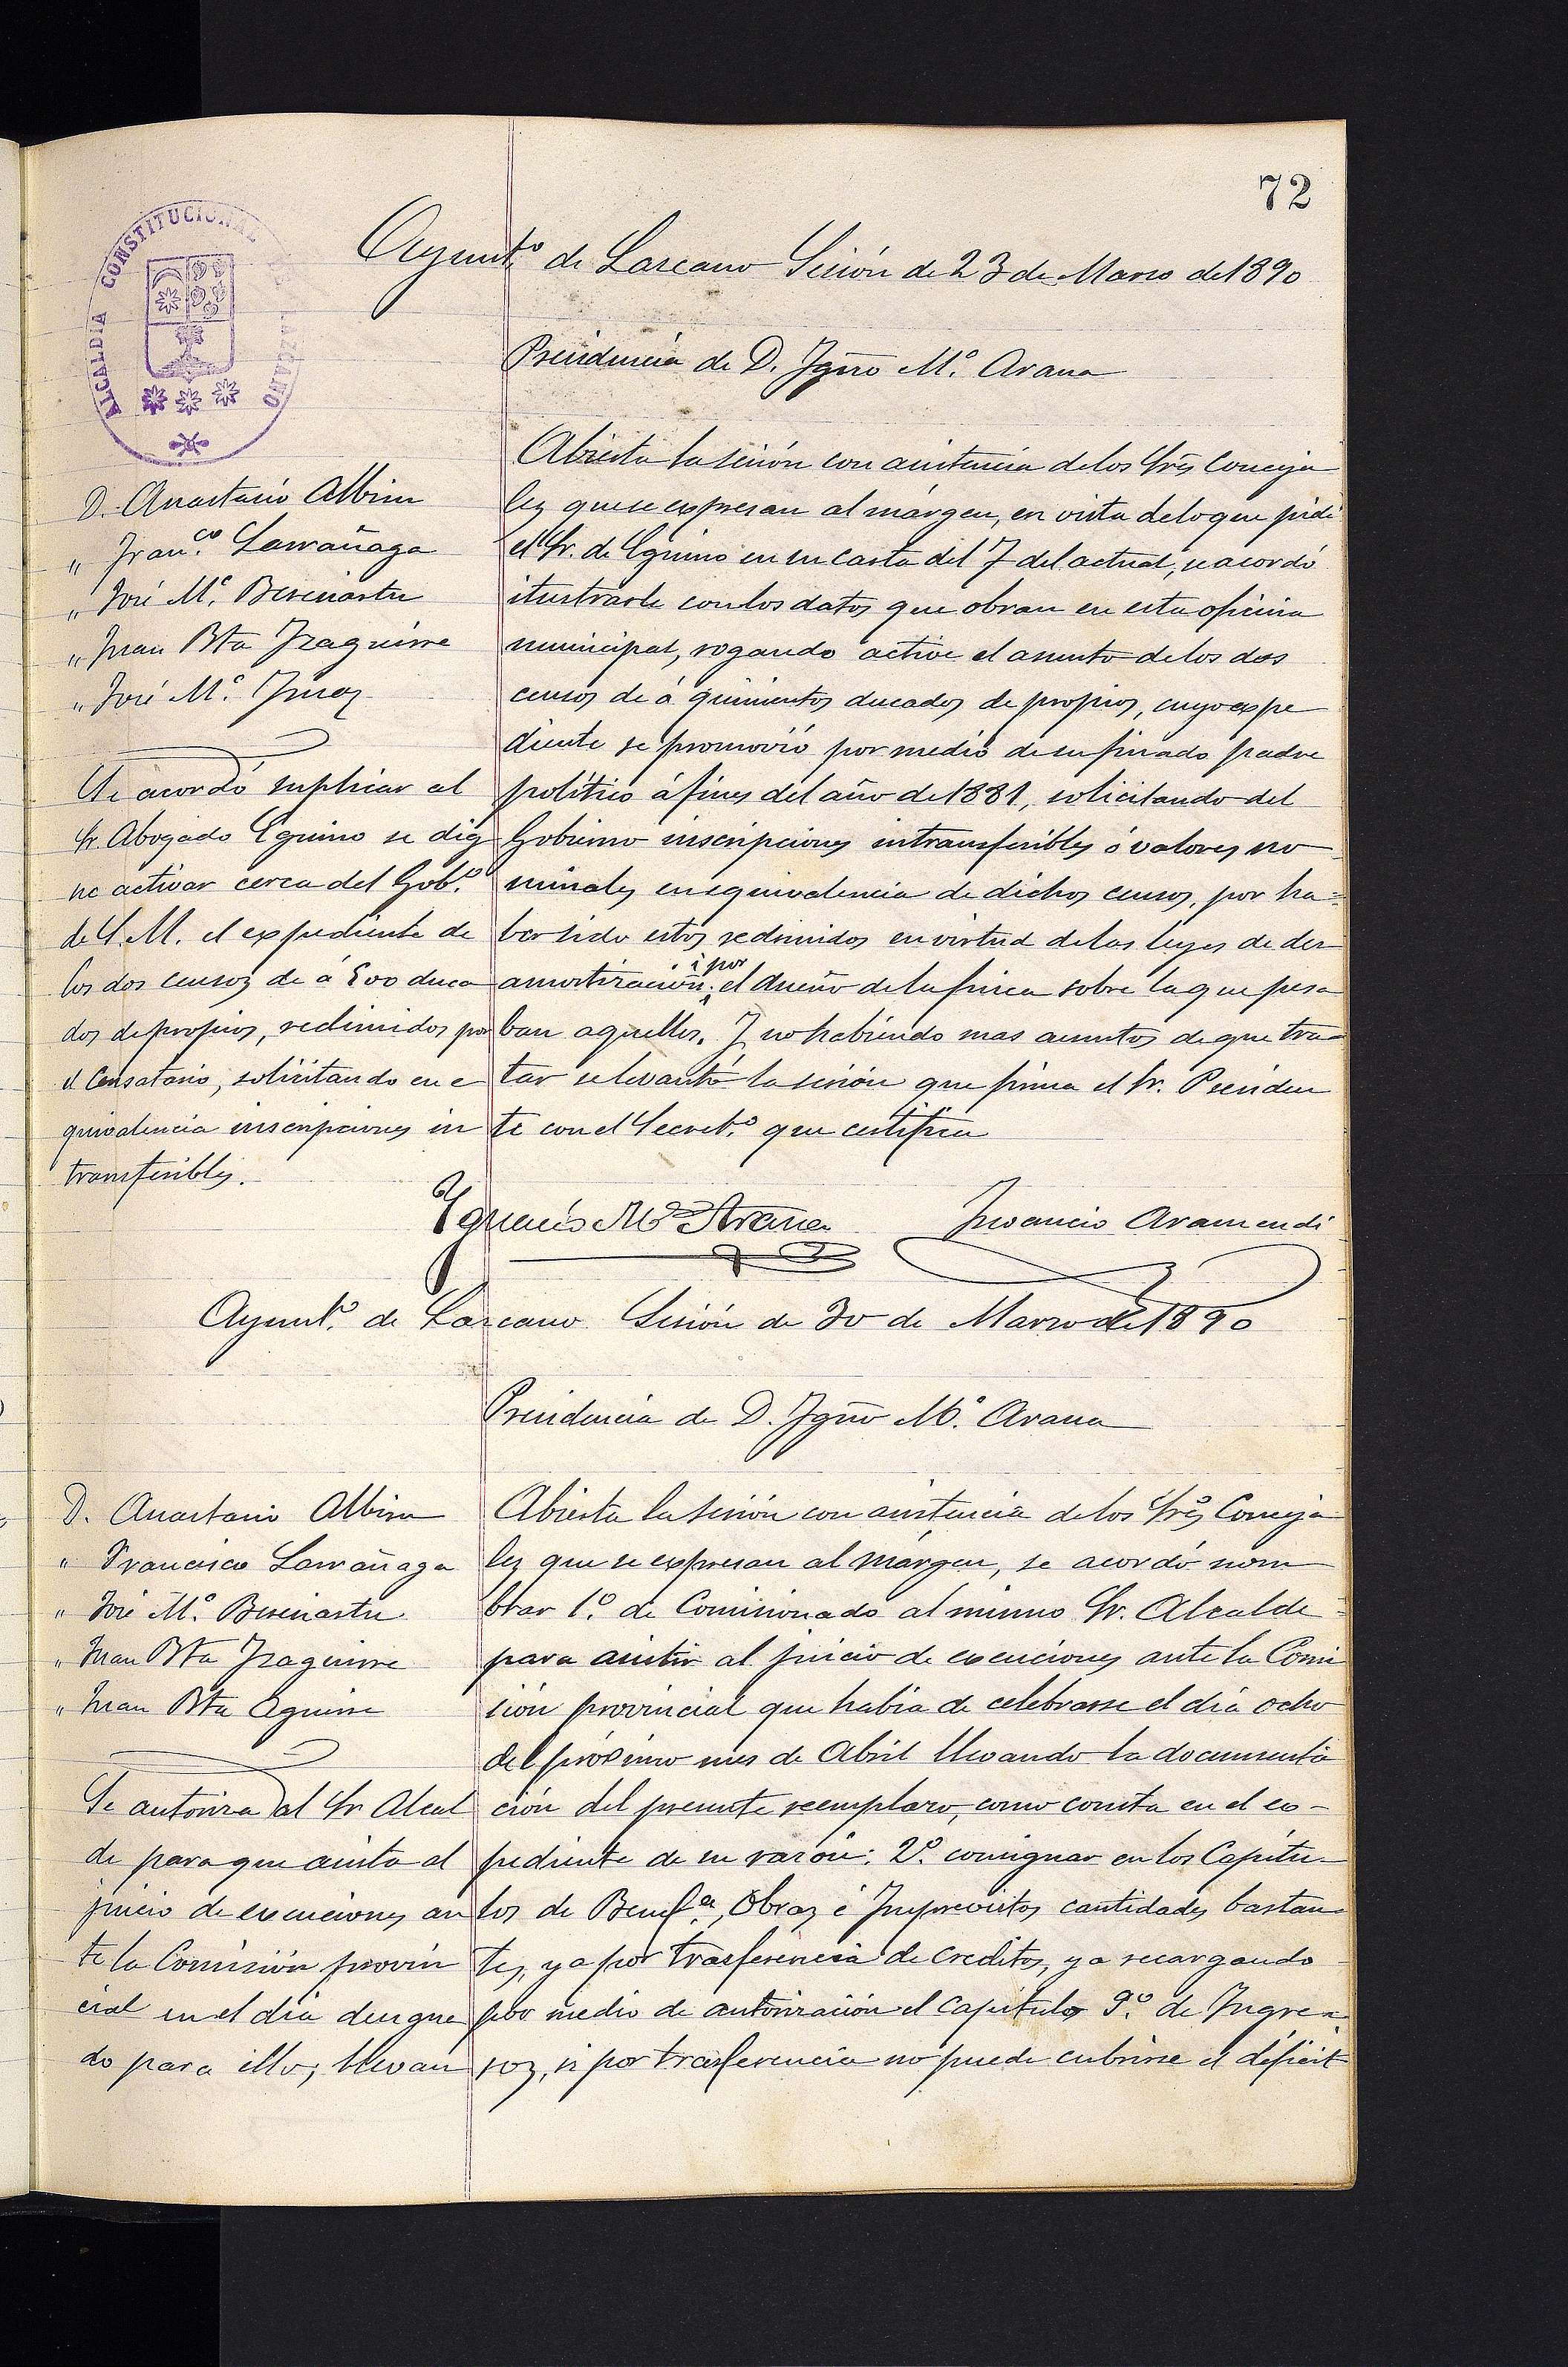 72
ALCALDÍA CONSTITUCIONAL
Ayunt.º de Lazcano Sesión de 23 de Marzo de 1890
Presidencia de D. Ygno M.ª Arana
D. Anastasio Albisu
" Fran.co Larrañaga
" José M.ª Bereciartu
" Juan Bta Yzaguirre
" José M.ª
Se acordó suplicar al
Sr. Abogado Eguino se dig
ne activar cerca del Gob.º
de S. M. el expediente de
los dos censos de á 500 duca
dos de propios, redimidos por
el Censatario, solicitando en e
quivalencia inscripciones in
transferibles.
Abierta la sesión con asistencia de los Sres Conceja
les que se expresan al márgen, en vista de lo que pide
el Sr. de Eguino en su carta del 7 del actual, se acordó
ilustrarle con los datos que obran en esta oficina
municipal, rogando active el asunto de los dos
censos de á quinientos ducados de propios, cuyo expe
diente se promovió por medio de su finado padre
político á fines del año de 1881, solicitando del
Gobierno inscripciones intransferibles ó valores no
minales en equivalencia de dichos censos, por ha=
ber sido estos redimidos en virtud de las leyes de des
amortización y por el dueño de la finca sobre la que pesa
ban aquellos. Y no habiendo mas asuntos de que tra
tar se levantó la sesión que firma el Sr. Presiden
te con el Secret.º que certifica
Ygnacio M.ª Arana Juvencio Aramendi
Ayunt.º de Lazcano Sesión de 30 de Marzo de 1890
Presidencia de D. Ygno M.ª Arana
D. Anastasio Albisu
" Francisco Larrañaga
" José M.ª Bereciartu
" Juan Bta Yzaguirre
" Juan Bta Aguirre
Se autoriza al Sr. Alcal
de para que asista al
juicio de exenciones an
te la Comisión provin
cial en el día designa
do para ello, llevan
Abierta la sesión con asistencia de los Sres Conceja
les que se expresan al márgen, se acordó nom
brar 1.º de Comisionado al mismo Sr. Alcalde
para asistir al juicio de exenciones ante la Comi
sión provincial que habia de celebrarse el día ocho
del próximo mes de Abril llevando la documenta
ción del presente reemplazo, como consta en el ex-
pediente de su razón: 2.º consignar en los Capítu-
los de Benef.ª, Obras é Imprevistos cantidades bastan
tes, ya por trasferencia de creditos, ya recargando
por medio de autorización el Capitulo 9.º de Ingre
sos, si por trasferencia no puede cubrirse el déficit